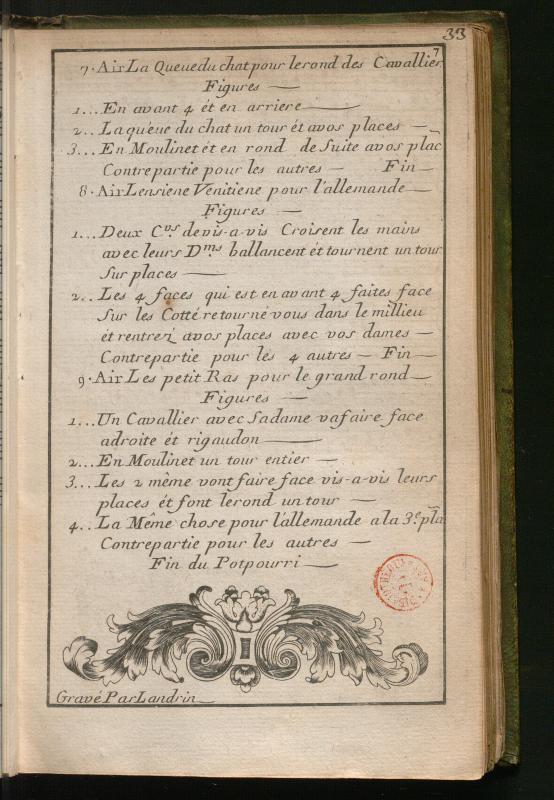 33
7
7. Air La Queue du chat pour le rond des Cavallier
Figures —
1... En avant 4 ét en arriere —
2.. La quéue du chat un tour ét avos places —
3... En Moulinet ét en rond de Suite avos plac
Contrepartie pour les autres — Fin —
8. Air Lensiene Vénitiene pour l'allemande —
Figures —
1... Deux C.ers de vis-a-vis Croisent les mains
avec leurs D.mes ballancent ét tournent un tour
Sur places —
2.. Les 4 faces qui est en avant 4 faites face
Sur les Cotté retourné vous dans le millieu
ét rentrez avos places avec vos dames —
Contrepartie pour les 4 autres — Fin —
9. Air Les petit Ras pour le grand rond —
Figures —
1... Un Cavallier avec Sadame vafaire face
adroite ét rigaudon —
2... En Moulinet un tour entier —
3... Les 2 même vont faire face vis-a-vis leurs
places ét font lerond un tour —
4.. La Même chose pour l'allemande a la 3.e pla
Contrepartie pour les autres —
Fin du Potpourri —
Gravé Par Landrin —